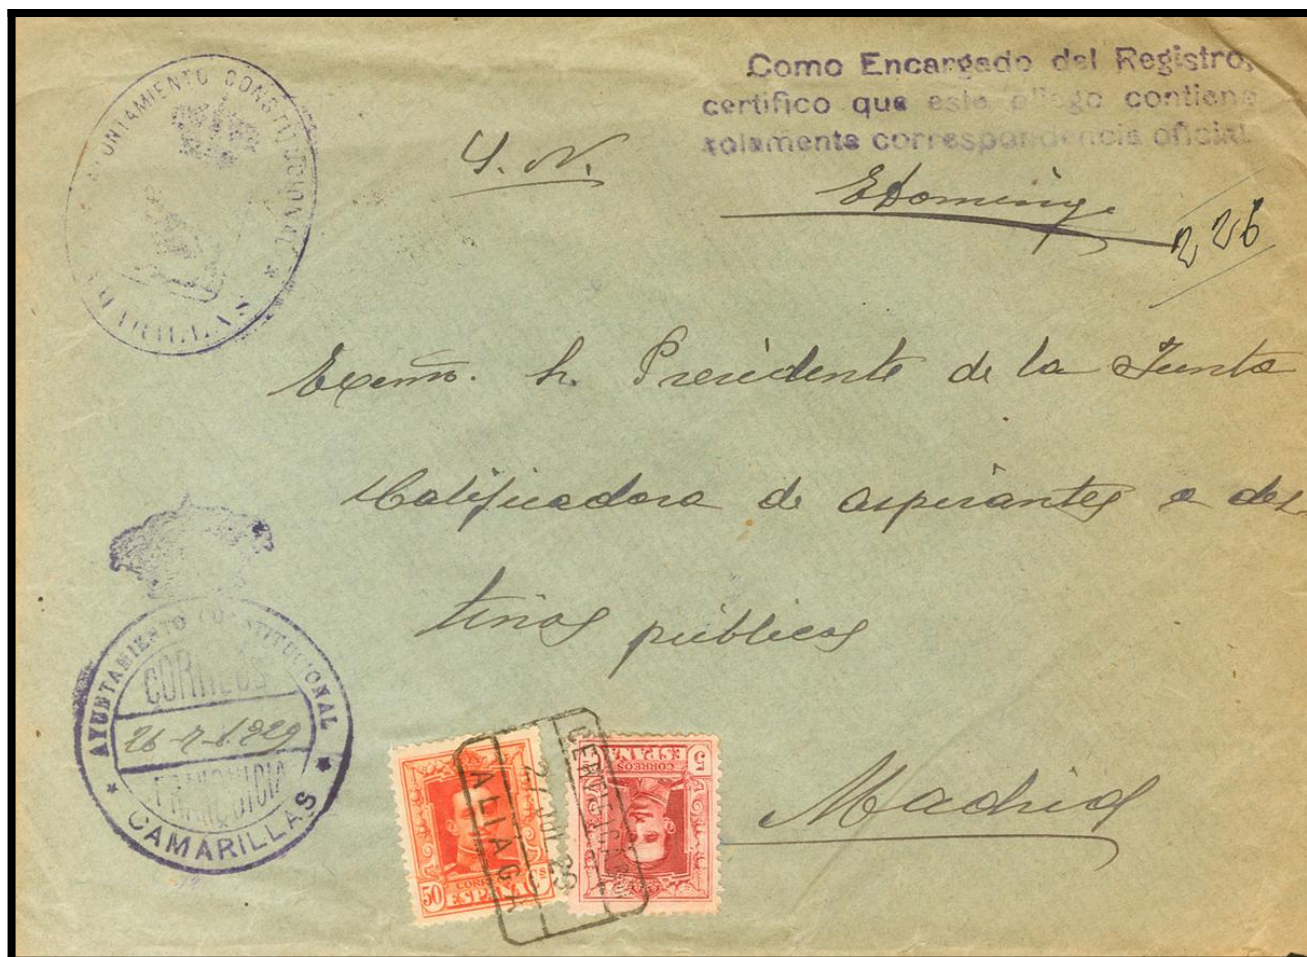 AYUNTAMIENTO CONSTITUCIONAL *
Como Encargado del Registro,
certifico que este pliego contiene
solamente correspondencia oficial.
S. N.
EDomingo
226
Excmo. Sr. Presidente de la Junta
Calificadora de aspirantes a des
tinos públicos
Madrid
* AYUNTAMIENTO CONSTITUCIONAL *
CORREOS
26-7-1.929
FRANQUICIA
CAMARILLAS
CERTIFICADO
27 JUL 29
ALIAGA
50 CS
CORREOS
ESPAÑA
5
CORREOS
ESPAÑA